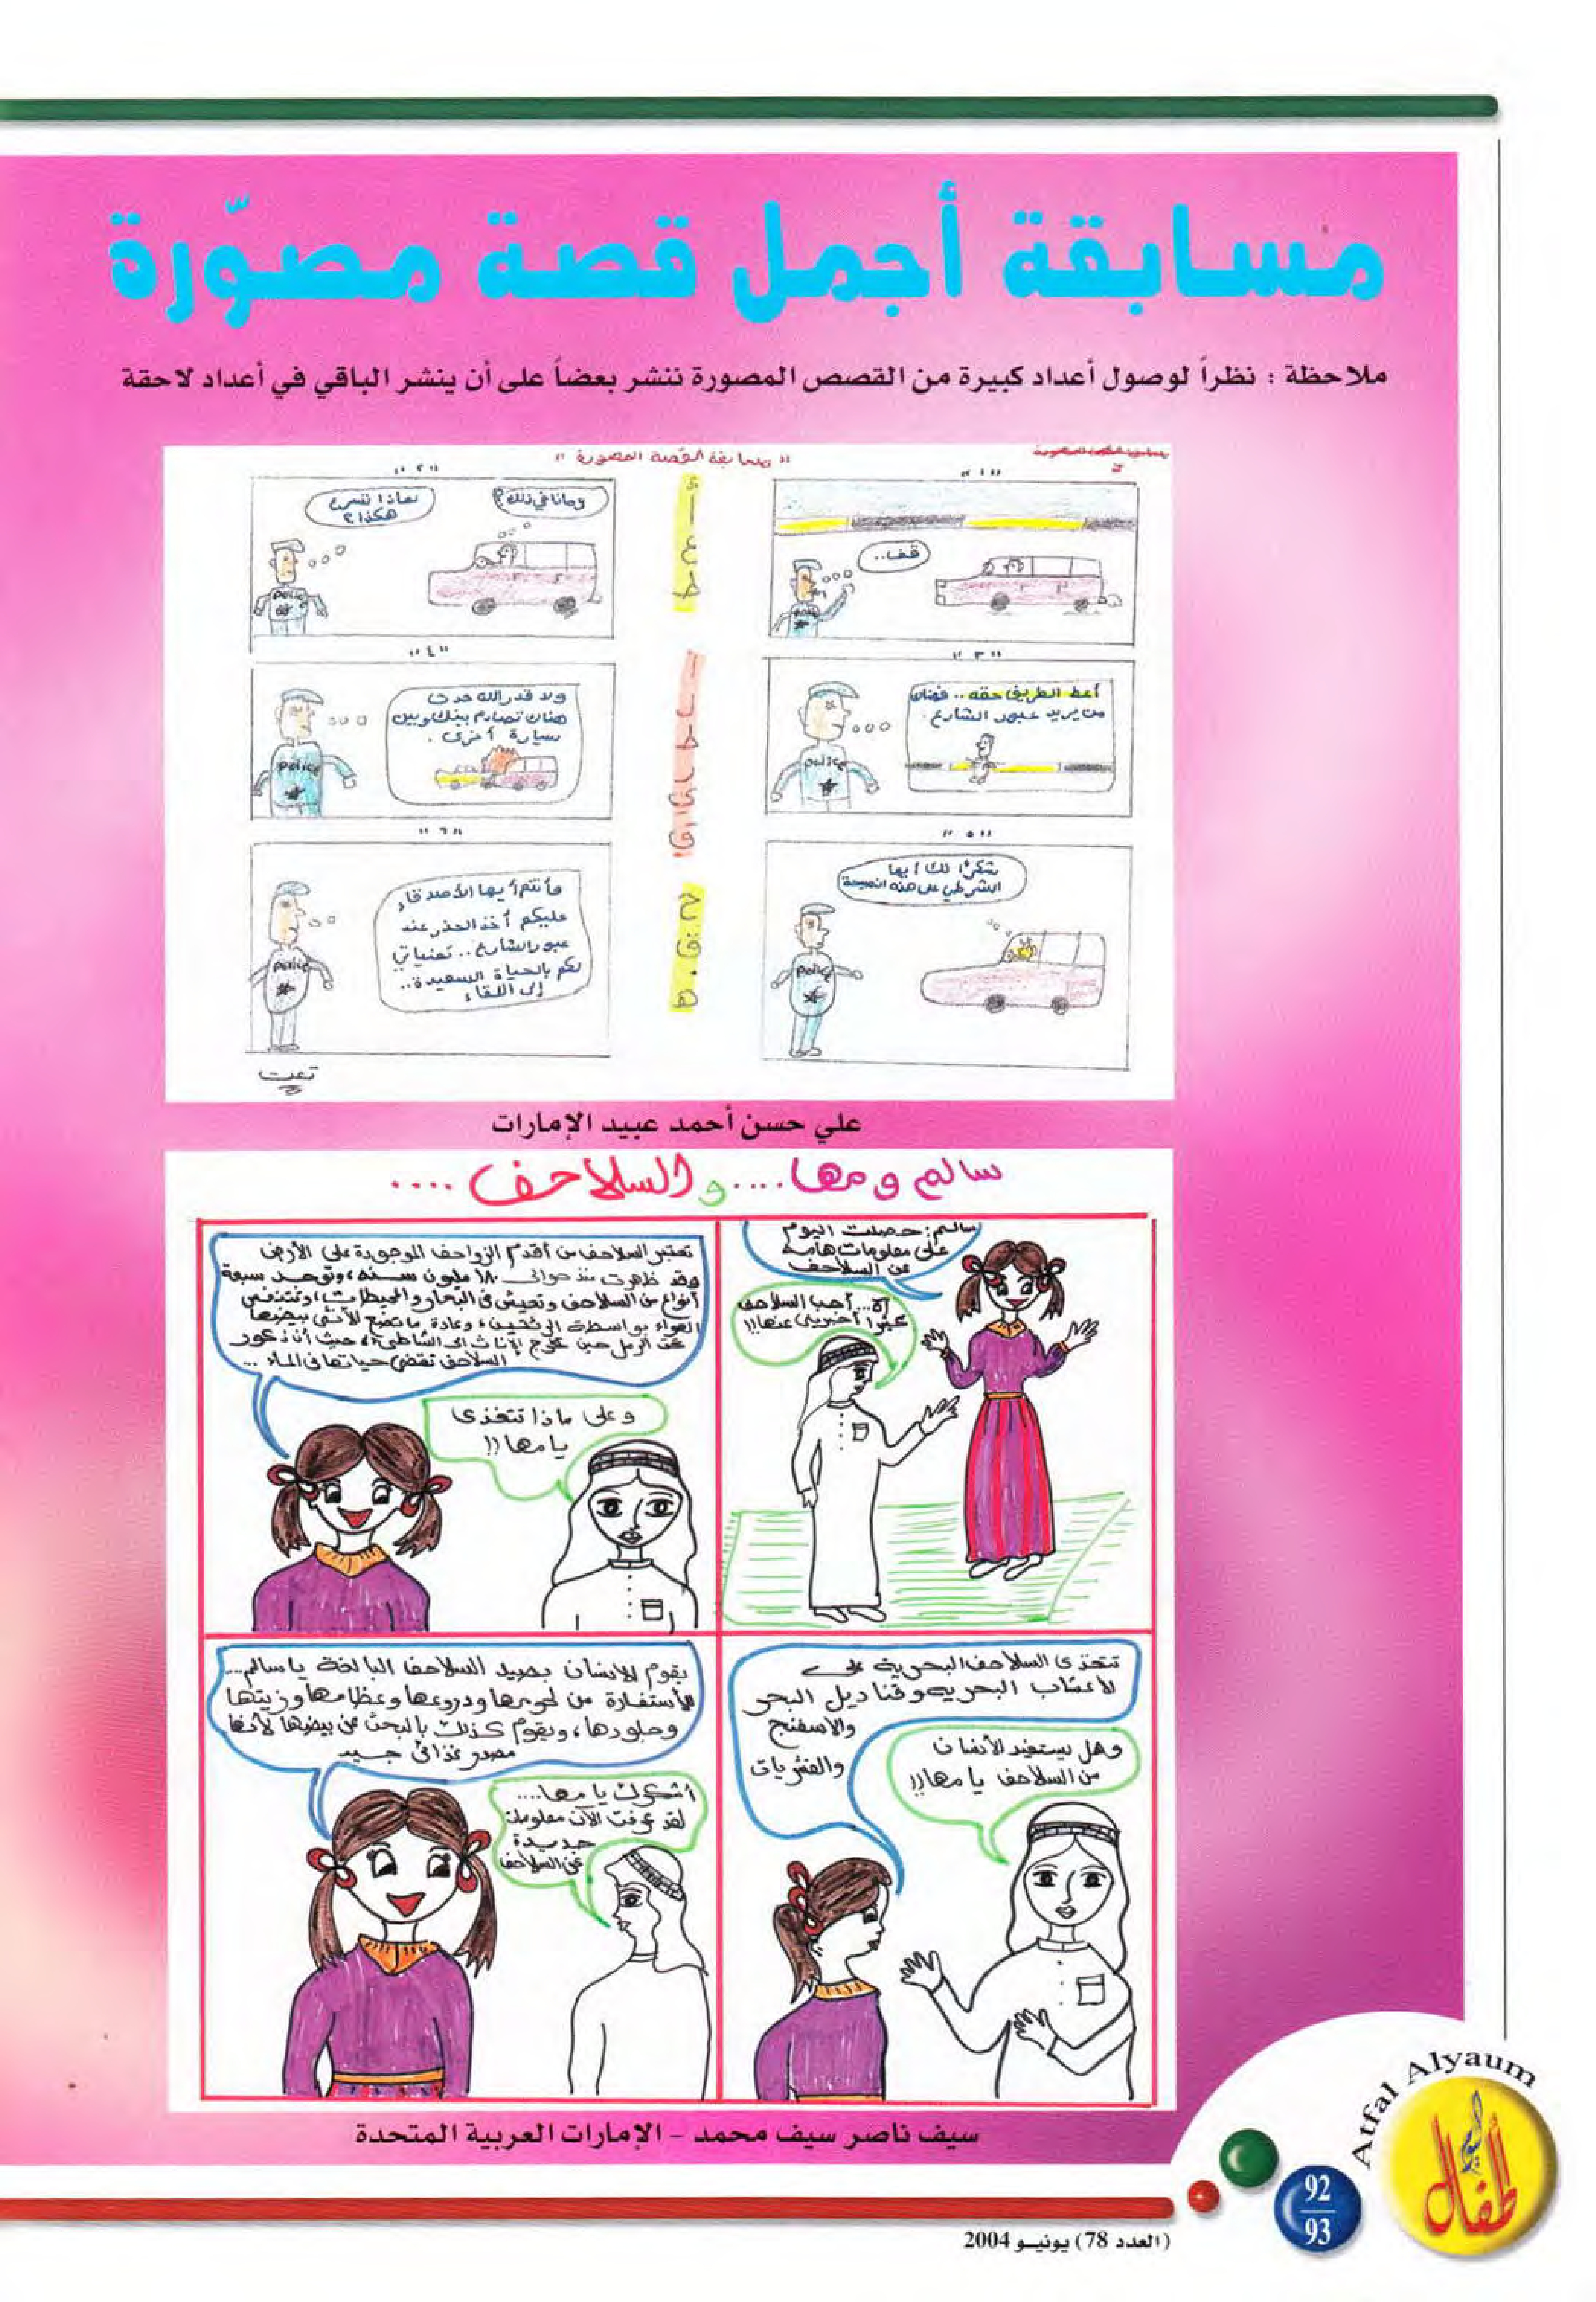 مسابقة أجمل قصة مصوّرة
ملاحظة : نظراً لوصول أعداد كبيرة من القصص المصورة ننشر بعضاً على أن ينشر الباقي في أعداد لاحقة
" مسابقة القصة المصورة "
"١"
قف..
"٢"
وماذا في ذلك؟
لماذا تسرع
هكذا؟
"٣"
أعط الطريق حقه.. فهناك
من يريد عبور الشارع.
police
"٤"
ولا قدر الله حدث
هناك تصادم بينك وبين
سيارة أخرى.
police
"٥"
شكراً لك أيها
الشرطي على هذه النصيحة
police
"٦"
وأنتم أيها الأصدقاء
عليكم أخذ الحذر عند
عبور الشارع.. تمنياتي
لكم بالحياة السعيدة..
إلى اللقاء
police
تمت
علي حسن أحمد عبيد الإمارات
سالم ومها.... و السلاحف ....
سالم: حصلت اليوم
على معلومات هامة
عن السلاحف
آه... أحب السلاحف
كثيرا أخبريني عنها!!
تعتبر السلاحف من أقدم الزواحف الموجودة على الأرض
وقد ظهرت منذ حوالي ١٨٠ مليون سنة، وتوجد سبعة
أنواع من السلاحف وتعيش في البحار والمحيطات، وتتنفس
الهواء بواسطة الرئتين، وعادة ما تضع الأنثى بيضها
تحت الرمل حين تخرج الإناث إلى الشاطئ، حيث أن ذكور
السلاحف تقضي حياتها في الماء ...
وعلى ماذا تتغذى
يا مها!!
تتغذى السلاحف البحرية على
الأعشاب البحرية وقناديل البحر
والاسفنج
والقشريات
وهل يستفيد الأنسان
من السلاحف يا مها!!
يقوم الأنسان بصيد السلاحف البالغة يا سالم....
للأستفادة من لحومها ودروعها وعظامها وزيتها
وجلودها، ويقوم كذلك بالبحث عن بيضها لأنها
مصدر غذائي جيد
أشكرك يا مها....
لقد عرفت الآن معلومات
جديدة
عن السلاحف
سيف ناصر سيف محمد - الإمارات العربية المتحدة
Atfal Alyaum
أطفال اليوم
92
93
(العدد 78) يونيــو 2004